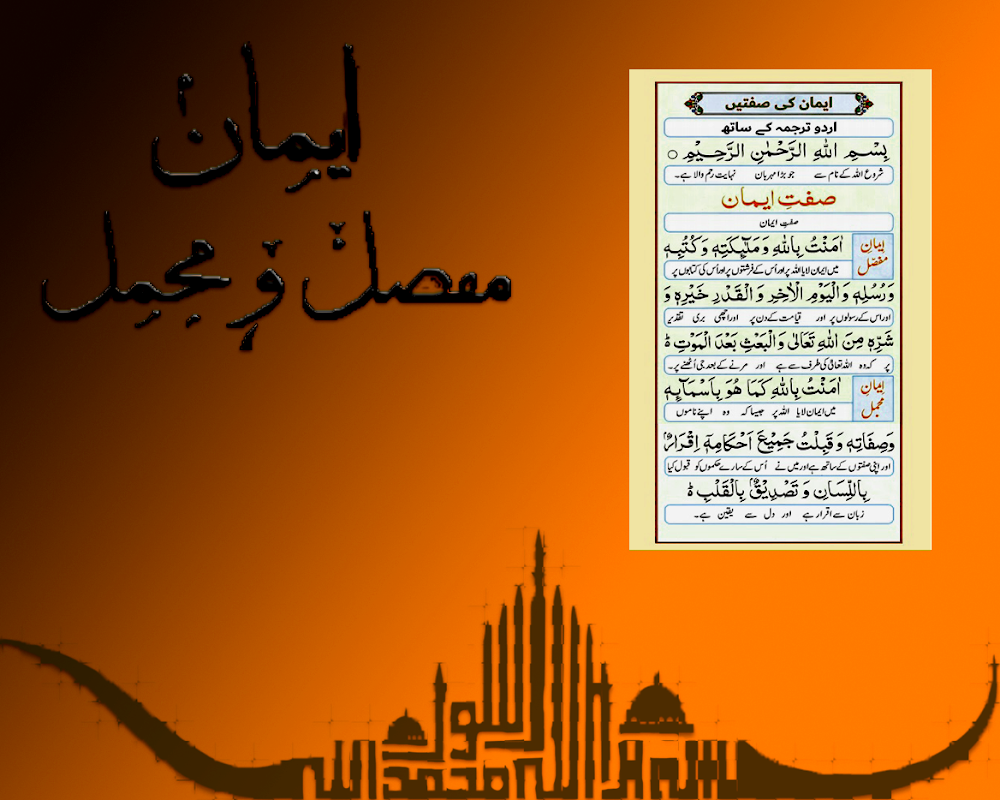 ایمان
مفصل و مجمل
ایمان کی صفتیں
اردو ترجمہ کے ساتھ
بِسْمِ اللهِ الرَّحْمٰنِ الرَّحِيْمِ ○
شروع اللہ کے نام سے جو بڑا مہربان نہایت رحم والا ہے۔
صفتِ ایمان
صفتِ ایمان
ایمان مفصّل
اٰمَنْتُ بِاللهِ وَمَلٰٓئِكَتِهٖ وَكُتُبِهٖ
میں ایمان لایا اللہ پر اور اُس کے فرشتوں پر اور اُس کی کتابوں پر
وَرُسُلِهٖ وَالْيَوْمِ الْاٰخِرِ وَالْقَدْرِ خَيْرِهٖ وَ
اور اس کے رسولوں پر اور قیامت کے دن پر اور اچھی بری تقدیر
شَرِّهٖ مِنَ اللهِ تَعَالٰى وَالْبَعْثِ بَعْدَ الْمَوْتِ ؕ
پر کہ وہ اللہ تعالیٰ کی طرف سے ہے اور مرنے کے بعد جی اُٹھنے پر۔
ایمان مجمل
اٰمَنْتُ بِاللهِ كَمَا هُوَ بِاَسْمَآئِهٖ
میں ایمان لایا اللہ پر جیسا کہ وہ اپنے ناموں
وَصِفَاتِهٖ وَقَبِلْتُ جَمِيْعَ اَحْكَامِهٖٓ اِقْرَارٌۢ
اور اپنی صفتوں کے ساتھ ہے اور میں نے اُس کے سارے حکموں کو قبول کیا
بِاللِّسَانِ وَ تَصْدِيْقٌۢ بِالْقَلْبِ ؕ
زبان سے اقرار ہے اور دل سے یقین ہے۔
لا اله الا الله محمد رسول الله